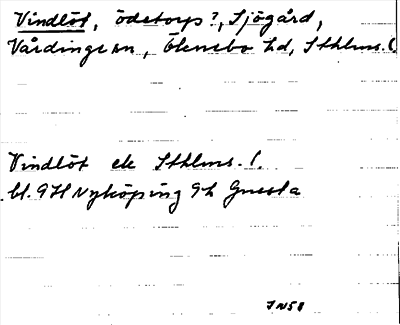 Vindlöt, ödetorp?, Sjögård,
Vårdinge sn, Öknebo hd, Sthlms. l.
Vindlöt ek Sthlms. l.
bl. 9H Nyköping 9h Gnesta